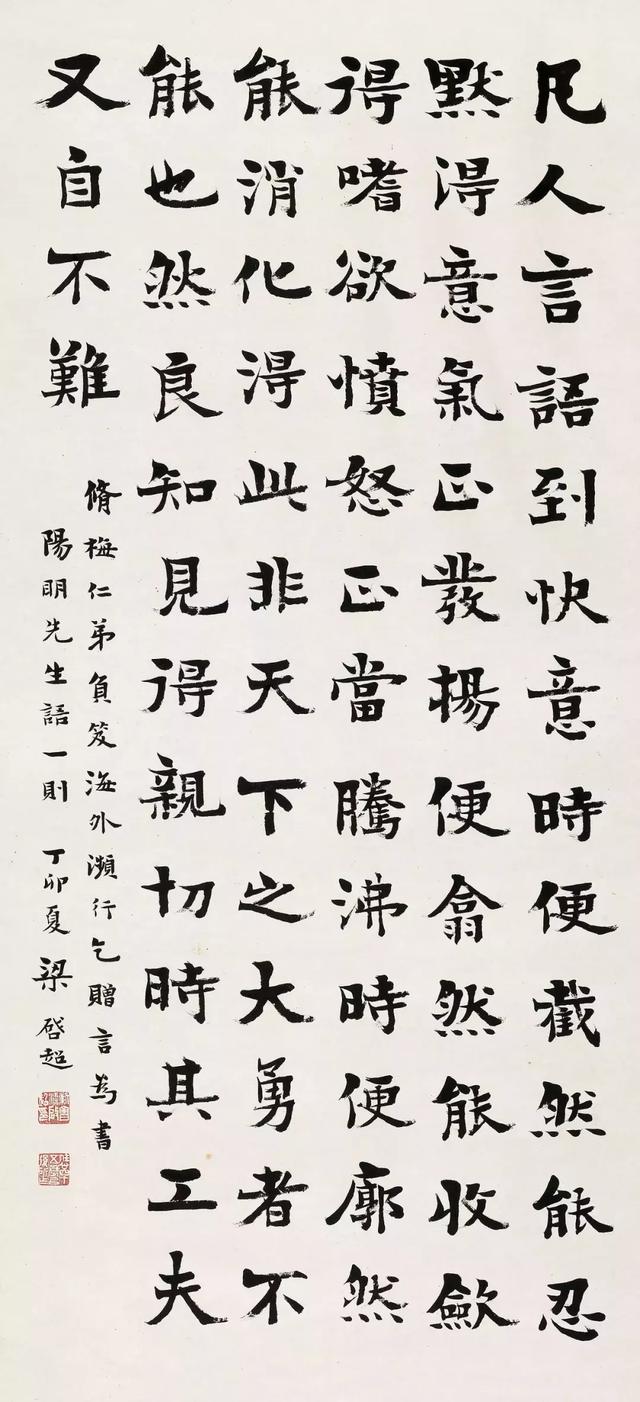 凡人言語到快意時便截然能忍
默得意氣正發揚便翕然能收斂
得嗜欲憤怒正當騰沸時便廓然
能消化得此非天下之大勇者不
能也然良知見得親切時其工夫
又自不難
脩梅仁弟負笈海外瀕行乞贈言為書
陽明先生語一則 丁卯夏 梁啓超